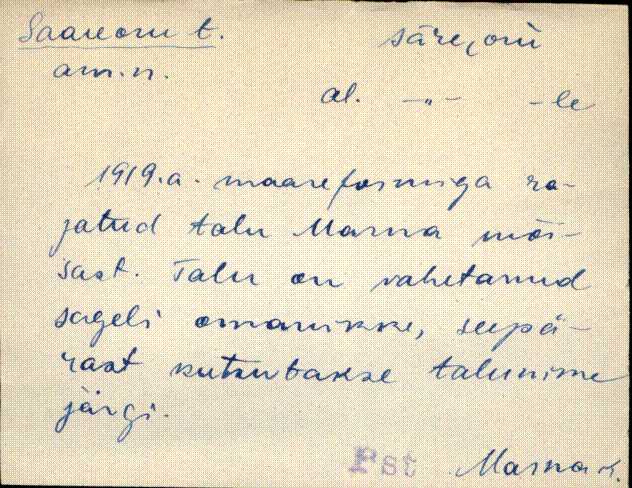 Saareoru t. säre, orü
am.n.
al. -"- -le
1919.a. maareformiga ra-
jatud talu Marna mõi-
sast. Talu on vahetanud
sageli omanikke, seepä-
rast kutsutakse talunime
järgi.
Pst Marna k.